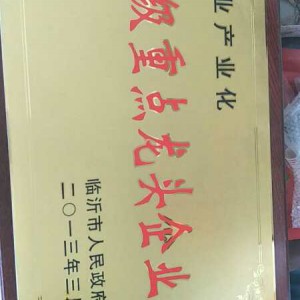 业产业化
级重点龙头企业
临沂市人民政府
二〇一三年三月